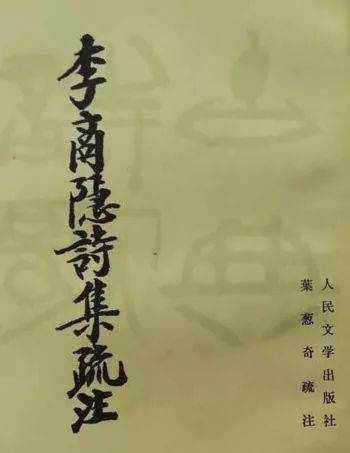 李商隱詩集疏注
人民文学出版社
葉葱奇疏注